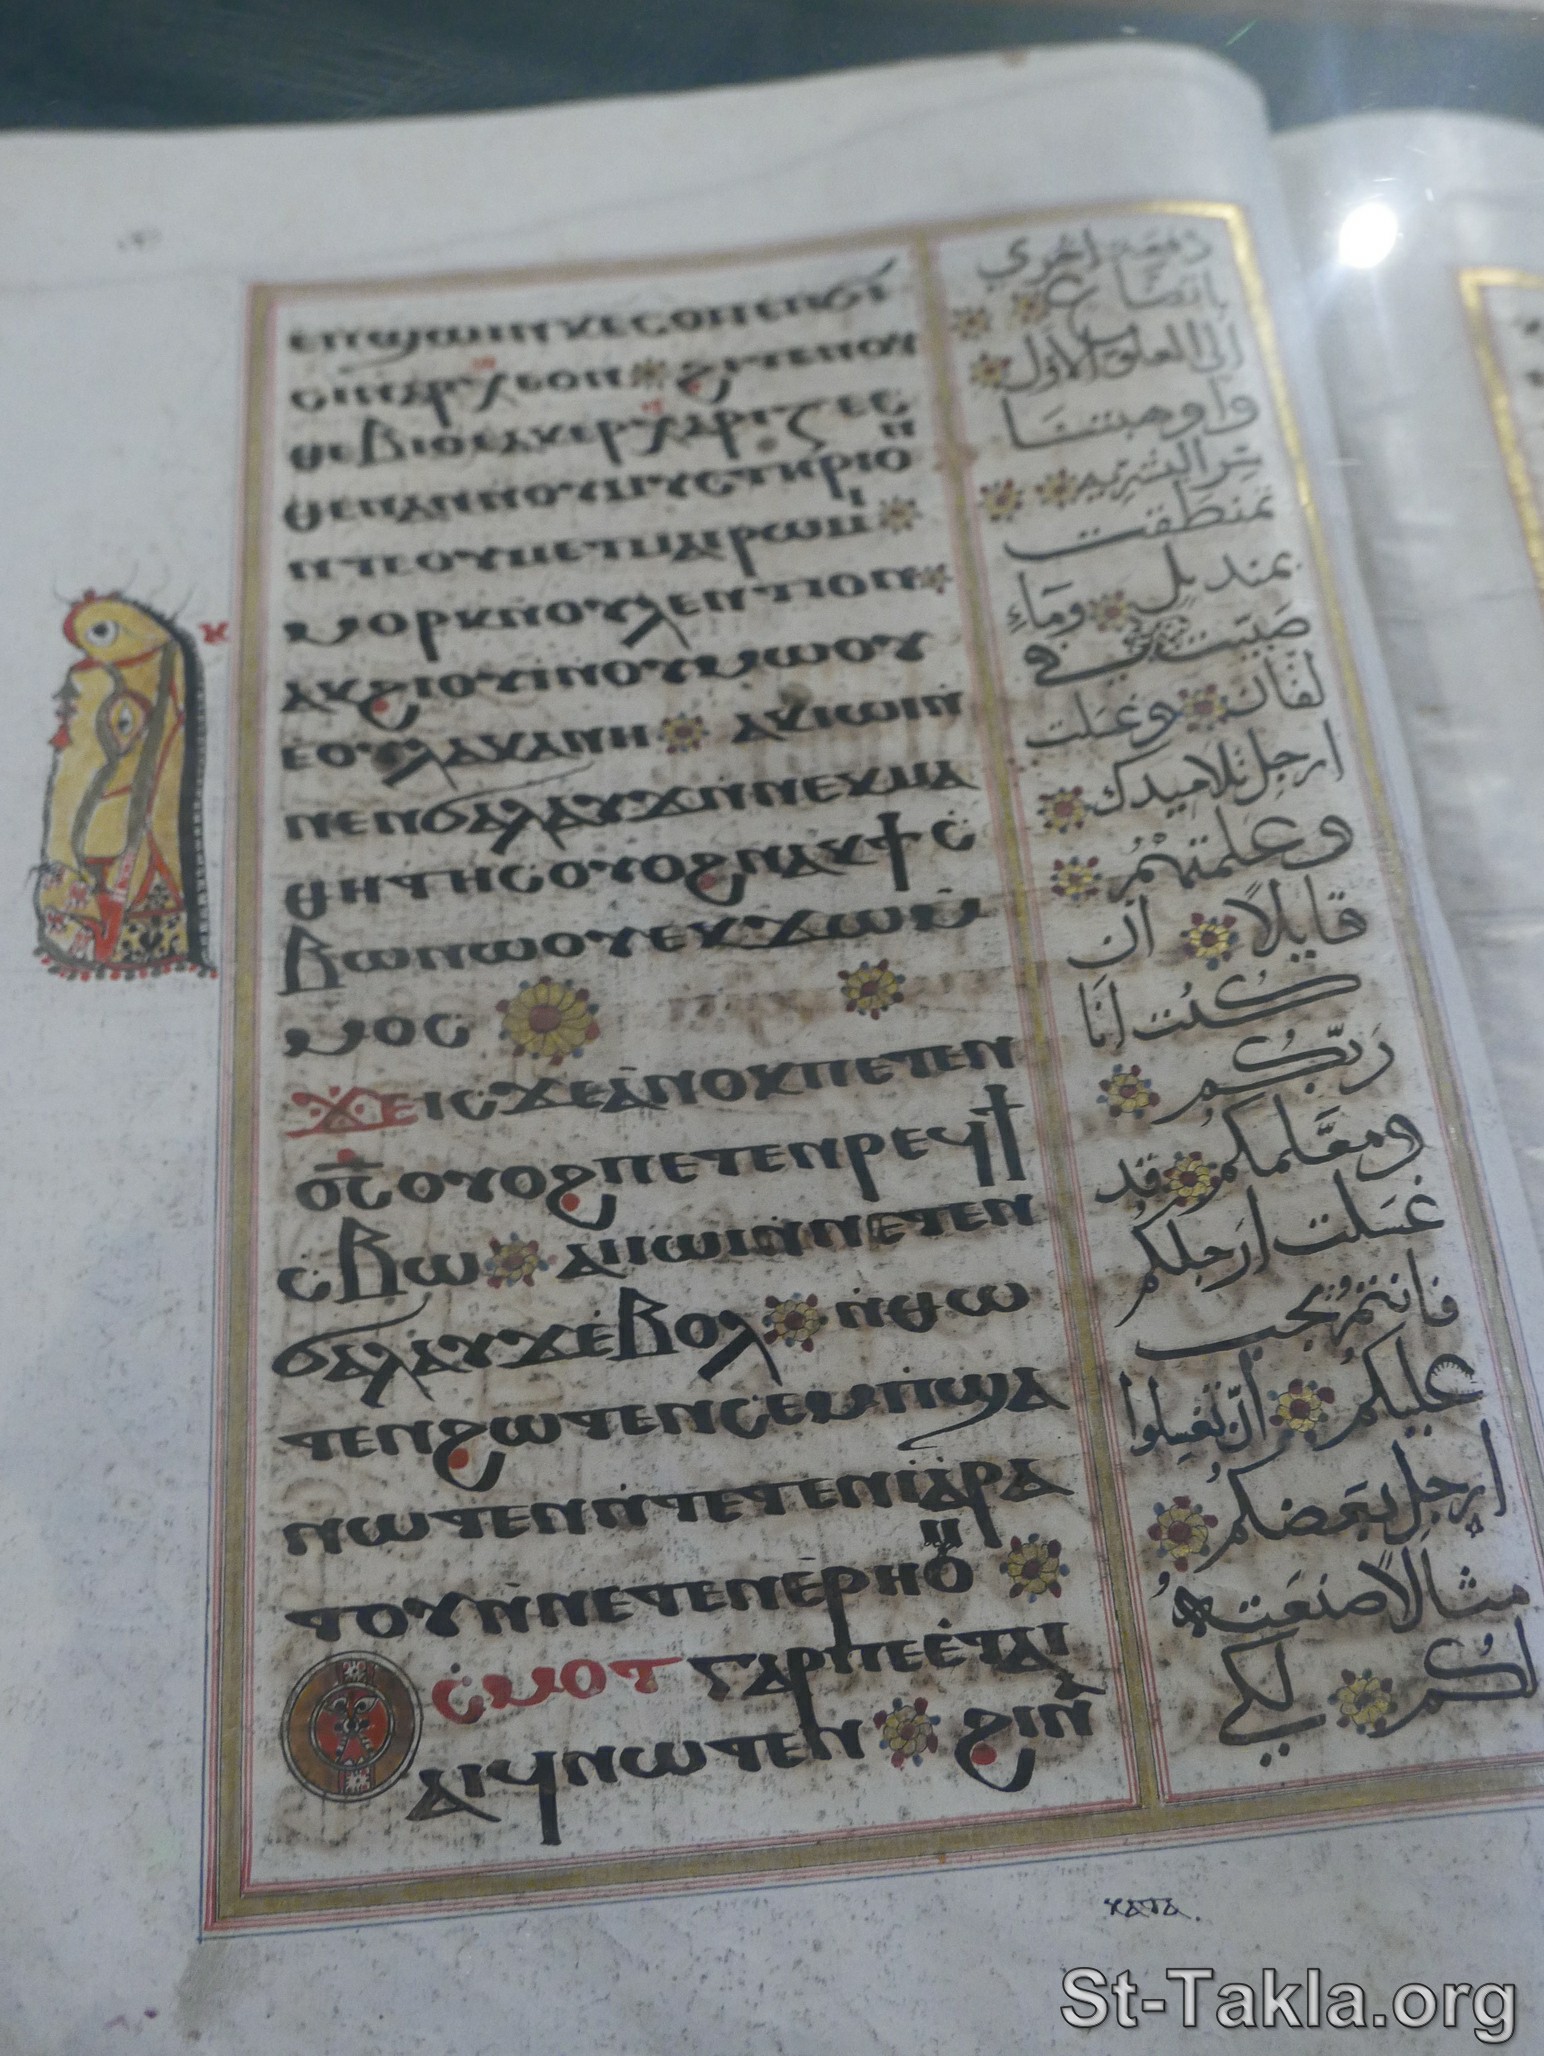 ⲉⲡϣⲱⲓⲛⲕⲉⲥⲟⲡⲉⲛϭⲓ
ⲥⲓⲛⲁⲣⲭⲉⲟⲛ ϩⲓⲧⲉⲛⲟⲩ
ⲑⲉⲃⲓⲟⲉⲁⲕⲉⲣⲭⲁⲣⲓⲍⲉⲥ
ⲑⲉⲛⲁⲛⲛⲟⲩⲙⲩⲥⲧⲏⲣⲓⲟ
ⲛⲧⲉⲟⲩⲙⲉⲧⲙⲁⲓⲣⲱⲙⲓ
ⲙⲟⲣⲕⲛⲟⲩⲗⲉⲛⲧⲓⲟⲛ
ⲁⲕϩⲓⲟⲩⲓⲛⲟⲩⲙⲱⲟⲩ
ⲉⲟⲩⲗⲁⲕⲁⲛⲏ ⲁⲕⲓⲱⲓⲛ
ⲛⲉⲛϭⲁⲗⲁⲩϫⲛⲛⲉⲕⲙⲁ
ⲑⲏⲧⲏⲥⲟⲩⲟϩⲛⲁⲕϯⲥ
ⲃⲱⲛⲱⲟⲩⲉⲕϫⲱⲙ
ⲙⲟⲥ
ϫⲉⲓⲥϫⲉⲁⲛⲟⲕⲡⲉⲧⲉⲛ
ⲟ̅ⲥ̅ⲟⲩⲟϩⲡⲉⲧⲉⲛⲣⲉϥϯ
ⲥⲃⲱ ⲁⲓⲓⲱⲓⲛⲛⲉⲧⲉⲛ
ϭⲁⲗⲁⲩϫⲉⲃⲟⲗ ⲛⲑⲱ
ⲧⲉⲛϩⲱⲧⲉⲛⲥⲉⲙⲡϣⲁ
ⲛⲱⲧⲉⲛⲛⲧⲉⲧⲉⲛⲓⲁⲣⲁ
ⲧⲟⲩⲛⲛⲉⲧⲉⲛⲉⲣⲏⲟⲩ
ⲥⲙⲟⲧ ⲅⲁⲣⲡⲉⲉⲧⲁⲓ
ⲁⲓϥⲛⲱⲧⲉⲛ ϩⲓⲛⲁ
دفعة اخري
باتضاع
الي العلو الاول
واوهبتنا
تمنطقت
بمنديل وماء
صببت في
لقان وغسلت
ارجل تلاميدك
وعلمتهم
قايلاً ان
كنت انا
ربكم
ومعلمكم قد
غسلت ارجلكم
فانتم يجب
عليكم ان تغسلوا
ارجل بعضكم
مثالاً صنعته
لكم لكي
ⲕⲁⲧⲁ
St-Takla.org